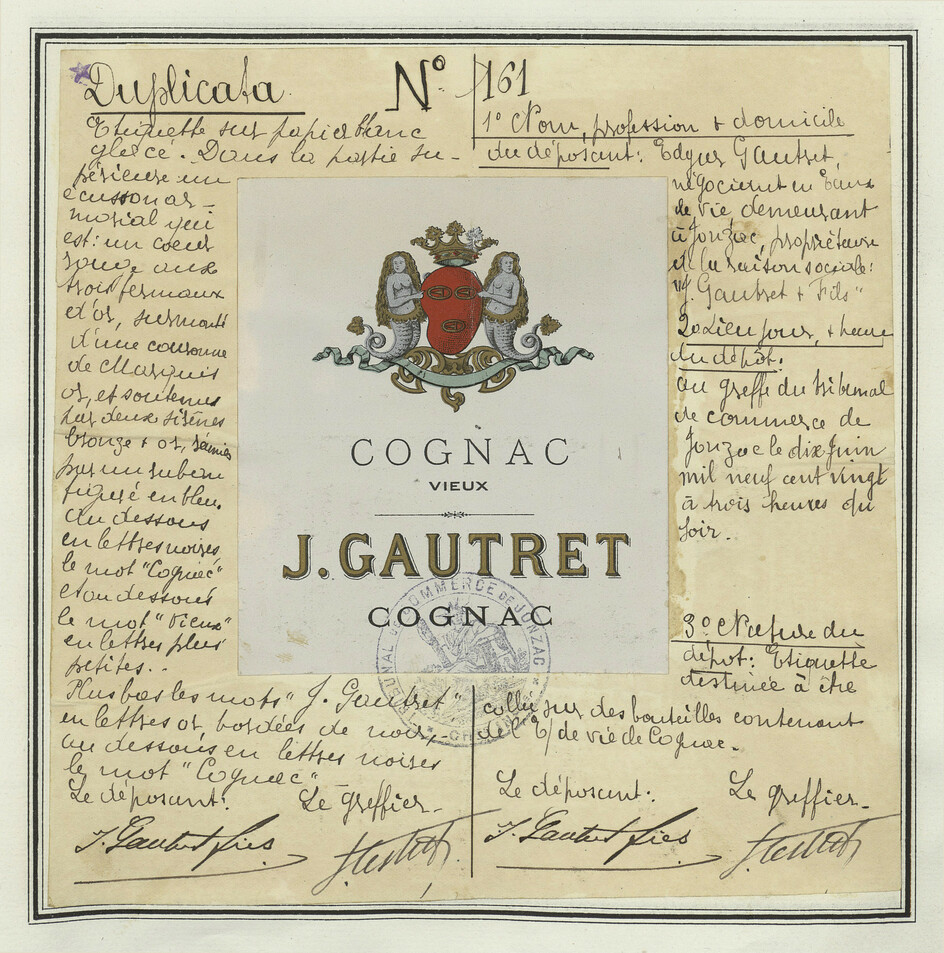 Duplicata
N° 161
Etiquette sur papier blanc
glacé. Dans la partie su-
périeure un
écusson ar-
morial qui
est: un coeur
rouge aux
trois fermaux
d'or, surmonté
d'une couronne
de Marquis
or, et soutenus
par deux sirènes
bronze & or, réunies
par un ruban
figuré en bleu.
Au dessous
en lettres noires
le mot "Cognac"
et au dessous
le mot "Vieux"
en lettres plus
petites..
Plus bas les mots "J. Gautret"
en lettres or, bordées de noir,
au dessous en lettres noires
le mot "Cognac"
Le déposant:
Le greffier
J. Gautret fils
COGNAC
VIEUX
J. GAUTRET
COGNAC
TRIBUNAL DE COMMERCE DE JONZAC
1° Nom, profession & domicile
du déposant: Edgar Gautret,
négociant en Eaux
de vie demeurant
à Jonzac, propriétaire
de la raison sociale:
"J. Gautret & Fils"
2° Lieu, jour, & heure
du dépôt:
au greffe du tribunal
de commerce de
Jonzac le dix Juin
mil neuf cent vingt
à trois heures du
soir.
3° Nature du
dépôt: Etiquette
destinée à être
collée sur des bouteilles contenant
de l'E/de vie de Cognac.
Le déposant:
Le greffier
J. Gautret fils